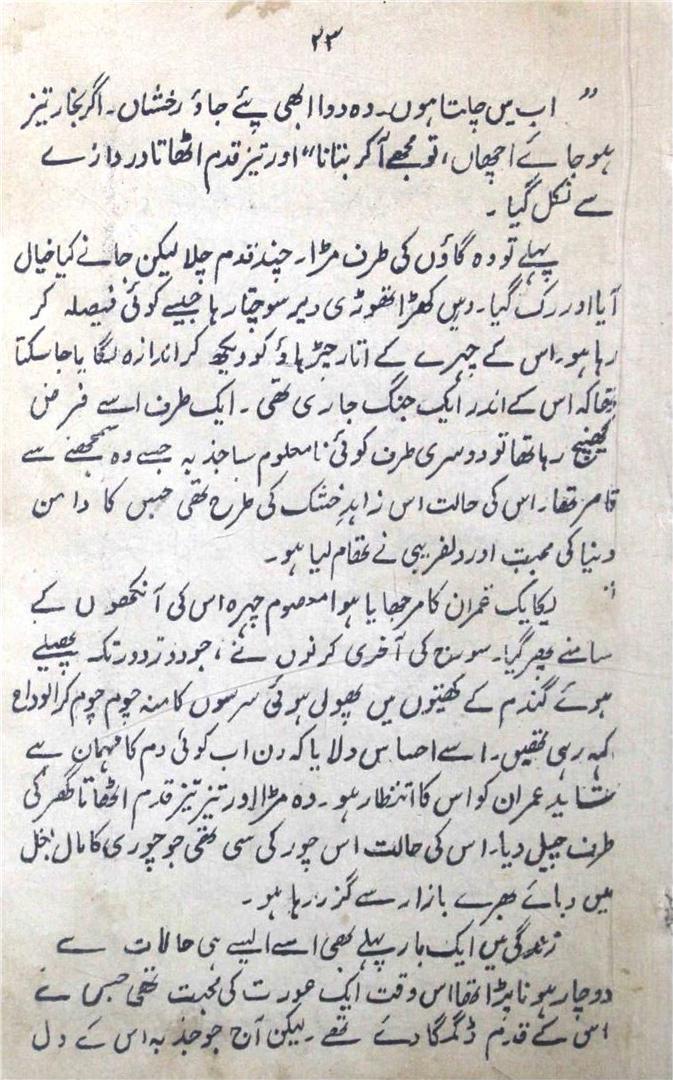 ۲۳
” اب میں چلتا ہوں۔ وہ دوا ابھی پئے جاؤ رخشاں۔ اگر بخار تیز
ہو جائے اچھاں، تو مجھے آ کر بتانا“ اور تیز قدم اٹھاتا دروازے
سے نکل گیا۔
پہلے تو وہ گاؤں کی طرف مڑا۔ چند قدم چلا لیکن جانے کیا خیال
آیا اور رک گیا۔ وہیں کھڑا تھوڑی دیر سوچتا رہا جیسے کوئی فیصلہ کر
رہا ہو۔ اس کے چہرے کے اتار چڑھاؤ کو دیکھ کر اندازہ لگایا جا سکتا
تھا کہ اس کے اندر ایک جنگ جاری تھی۔ ایک طرف اسے فرض
کھینچ رہا تھا تو دوسری طرف کوئی نامعلوم سا جذبہ جسے وہ سمجھنے سے
قاصر تھا۔ اس کی حالت اس زاہدِ خشک کی طرح تھی جس کا دامن
دنیا کی محبت اور دلفریبی نے تھام لیا ہو۔
یکایک عمران کا مرجھایا ہوا معصوم چہرہ اس کی آنکھوں کے
سامنے پھر گیا۔ سورج کی آخری کرنوں نے، جو دور دور تک پھیلے
ہوئے گندم کے کھیتوں میں پھولی ہوئی سرسوں کا منہ چوم چوم کر الوداع
کہہ رہی تھیں۔ اسے احساس دلایا کہ دن اب کوئی دم کا مہمان ہے
شاید عمران کو اس کا انتظار ہو۔ وہ مڑا اور تیز تیز قدم اٹھاتا گھر کی
طرف چل دیا۔ اس کی حالت اس چور کی سی تھی جو چوری کا مال بغل
میں دبائے بھرے بازار سے گزر رہا ہو۔
زندگی میں ایک بار پہلے بھی اسے ایسے ہی حالات سے
دوچار ہونا پڑا تھا اس وقت ایک عورت کی محبت تھی جس نے
اس کے قدم ڈگمگا دئے تھے۔ لیکن آج جو جذبہ اس کے دل